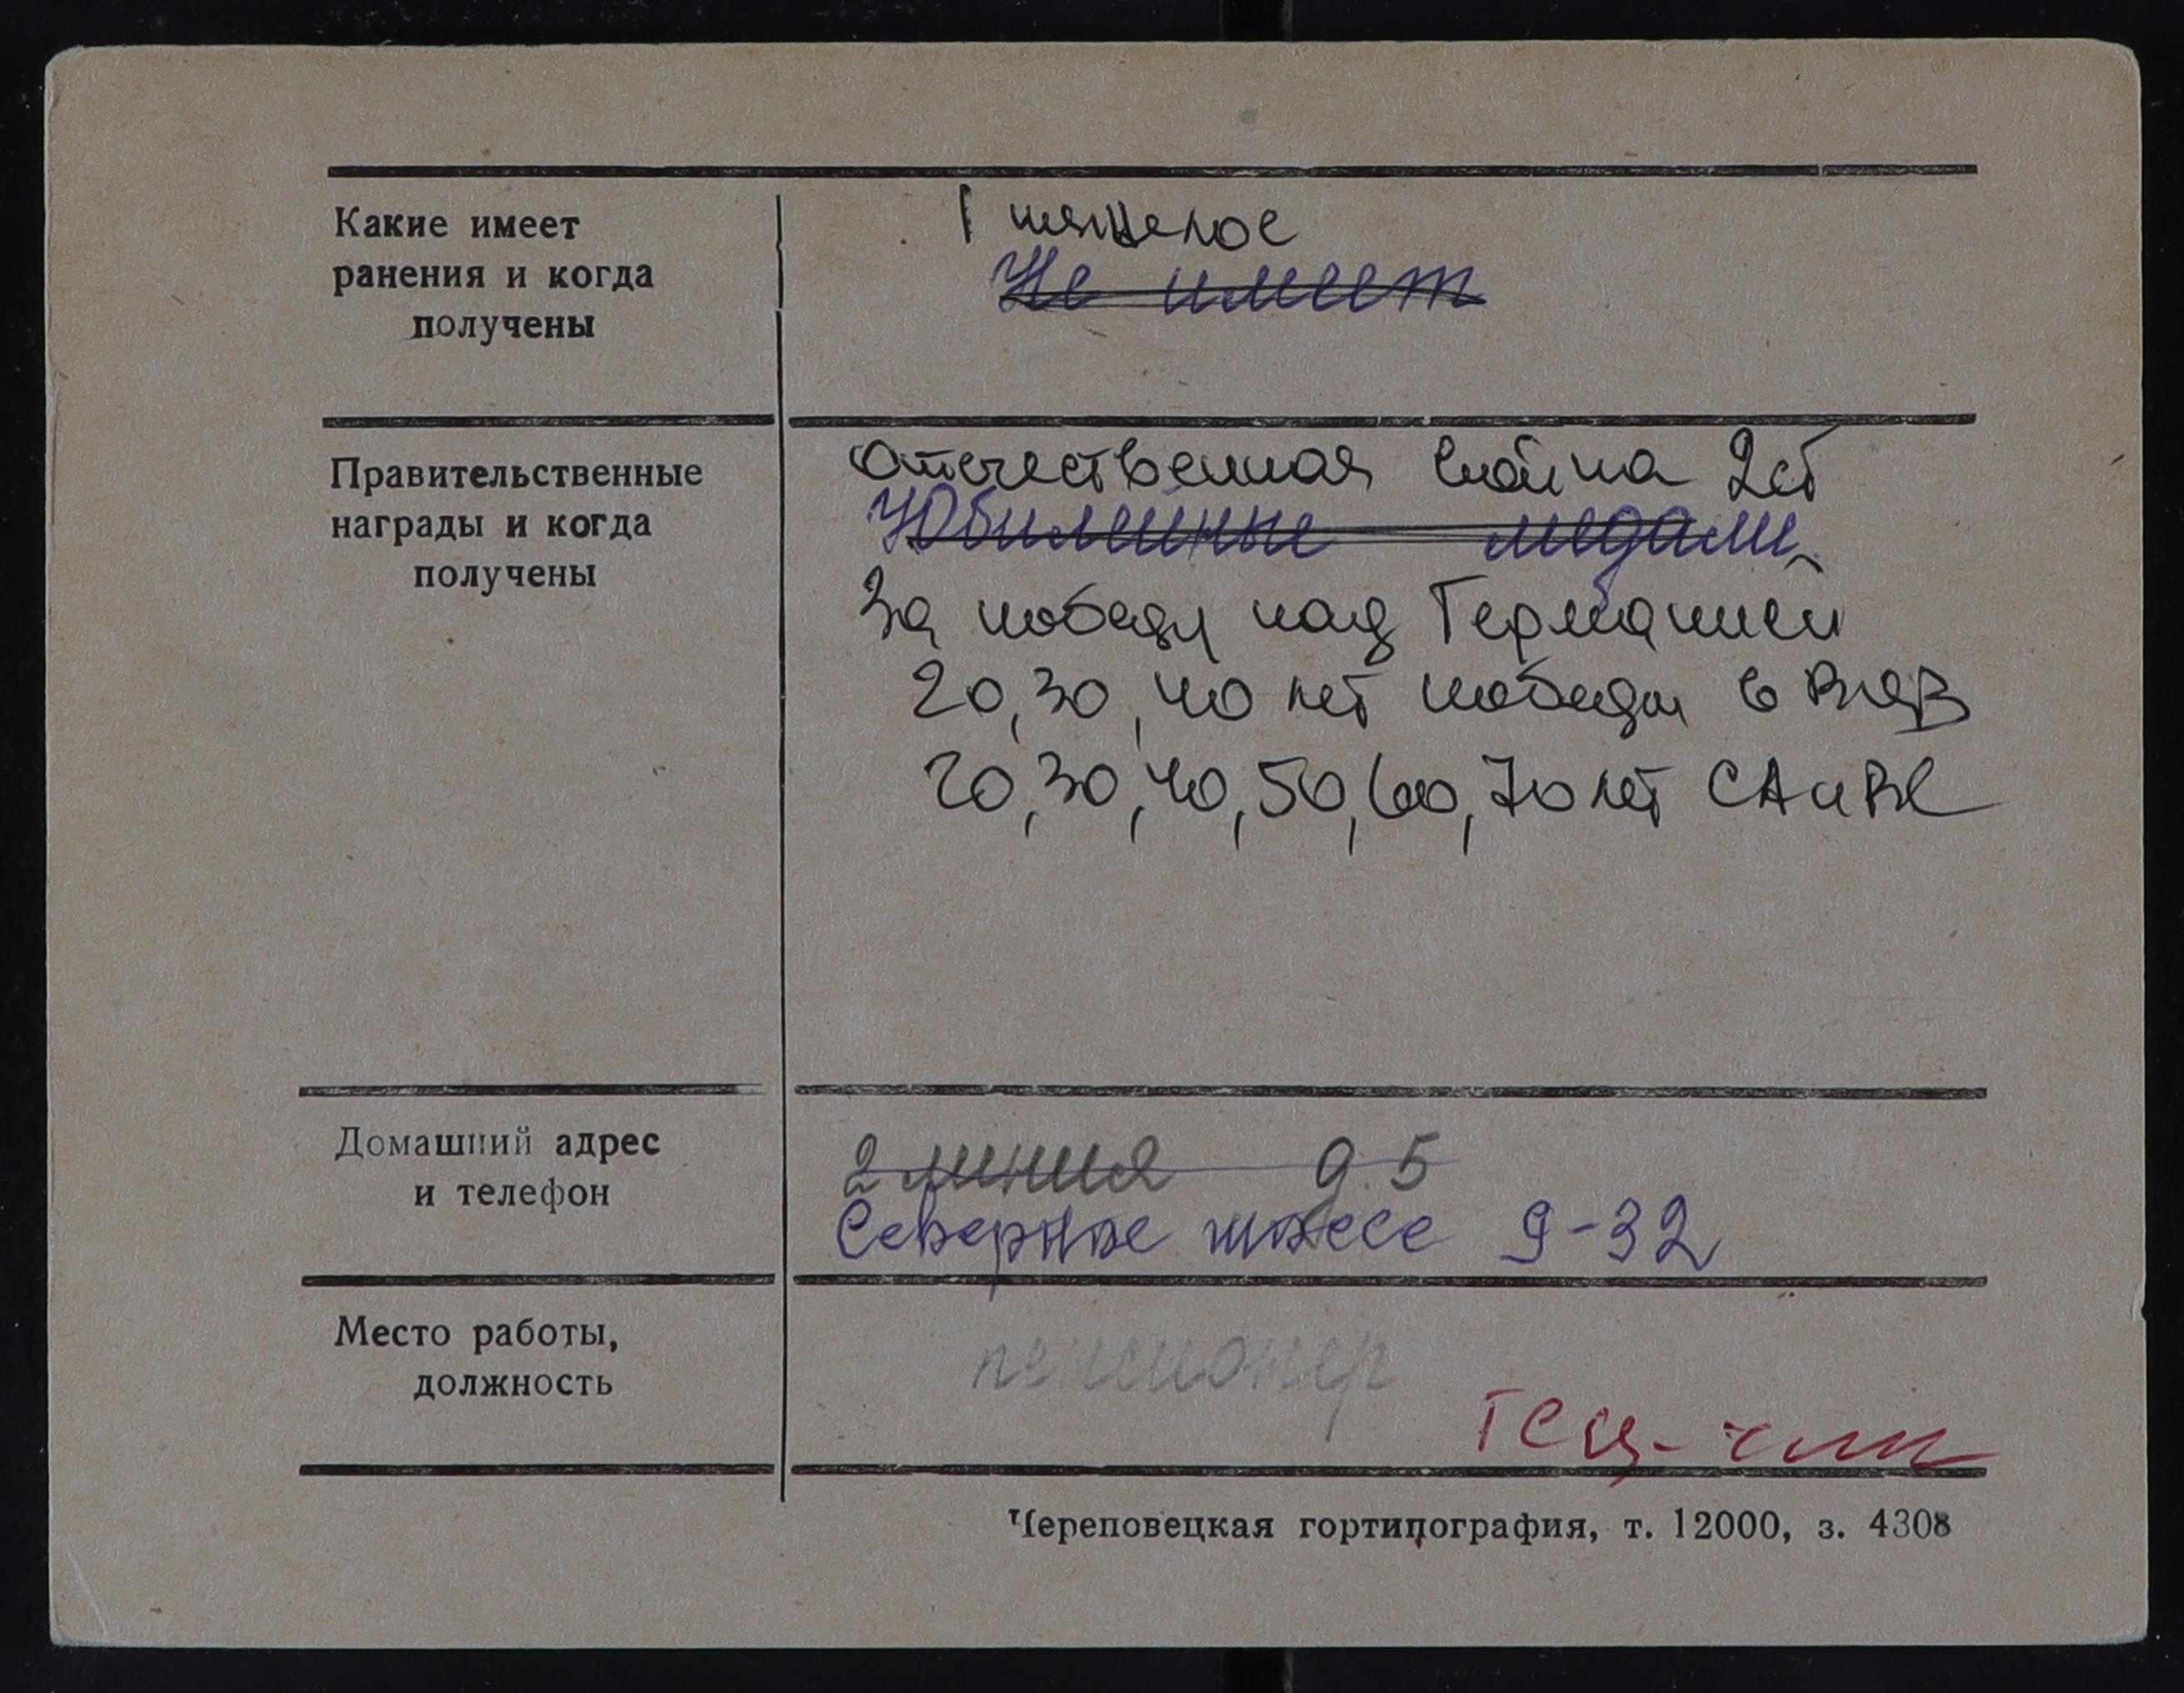 Какие имеет
ранения и когда
получены
1 тяжелое
Не имеет
Правительственные
награды и когда
получены
Отечественная война 2ст
Юбилейные медали.
За победу над Германией
20, 30, 40 лет победы в ВОВ
20, 30, 40, 50, 60, 70 лет СА и ВС
Домашний адрес
и телефон
2 линия д. 5
Северное шоссе 9-32
Место работы,
должность
пенсионер
Череповецкая гортипография, т. 12000, з. 4308